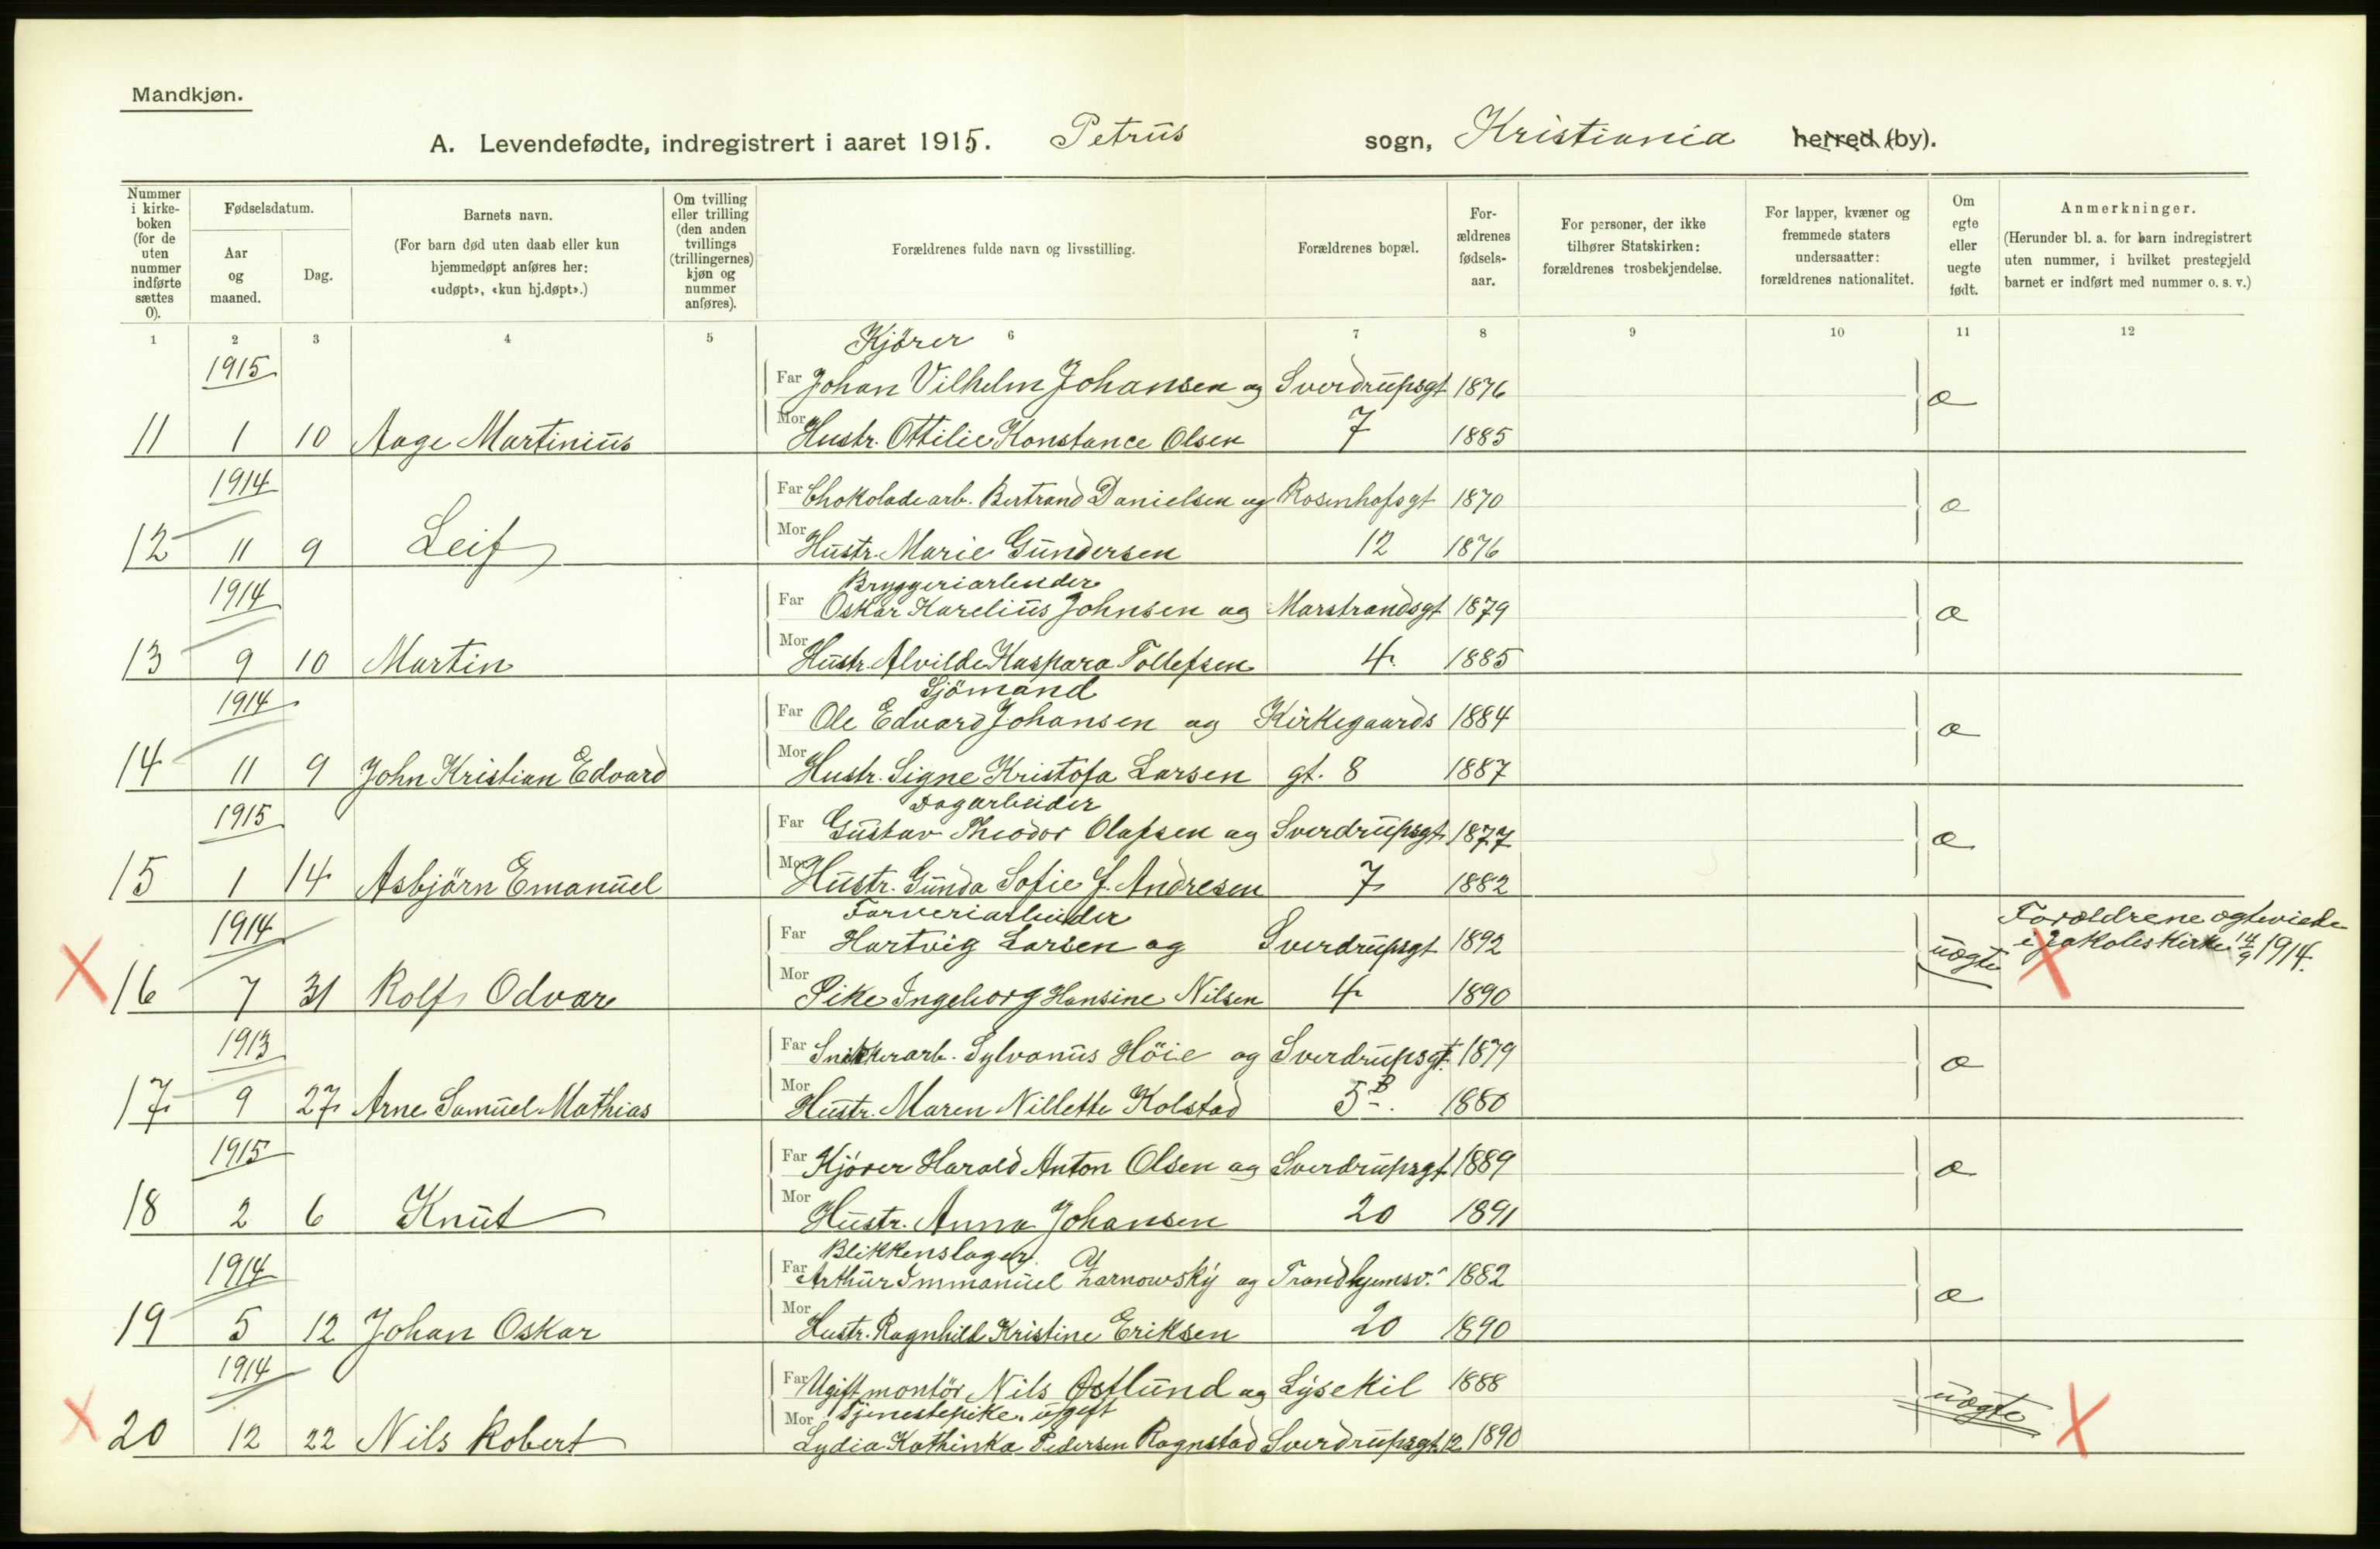 Mandkjøn.
A. Levendefødte, indregistrert i aaret 1915. Petrus sogn, Kristiania herred (by).
Nummer i kirke-boken (for de uten nummer indførte sættes 0).
Fødselsdatum.
Aar og maaned.
Dag.
Barnets navn.
(For barn død uten daab eller kun hjemmedøpt anføres her: «udøpt», «kun hj.døpt».)
Om tvilling eller trilling (den anden tvillings (trillingernes) kjøn og nummer anføres).
Forældrenes fulde navn og livsstilling.
Forældrenes bopæl.
For-ældrenes fødsels-aar.
For personer, der ikke tilhører Statskirken: forældrenes trosbekjendelse.
For lapper, kvæner og fremmede staters undersaatter: forældrenes nationalitet.
Om egte eller uegte født.
Anmerkninger.
(Herunder bl. a. for barn indregistrert uten nummer, i hvilket prestegjeld barnet er indført med nummer o. s. v.)
1 2 3 4 5 6 7 8 9 10 11 12
Kjörer
1915 Far Johan Vilhelm Johansen og Sverdrupsgt 1876 æ
11 1 10 Aage Martinius Mor Hustr. Ottilie Konstance Olsen 7 1885
1914 Far Chokoladearb. Bertrand Danielsen og Rosenhofsgt 1870 æ
12 11 9 Leif Mor Hustr. Marie Gundersen 12 1876
Bryggeriarbeider
1914 Far Oskar Karelius Johnsen og Marstrandsgt 1879 æ
13 9 10 Martin Mor Hustr. Alvilde Kaspara Tollefsen 4 1885
Sjömand
1914 Far Ole Edvard Johansen og Kirkegaards 1884 æ
14 11 9 John Kristian Edvard Mor Hustr. Signe Kristofa Larsen gt. 8 1887
Dagarbeider
1915 Far Gustav Theodor Olafsen og Sverdrupsgt 1877 æ
15 1 14 Asbjörn Emanuel Mor Hustr. Gunda Sofie f. Andresen 7 1882
Farveriarbeider
1914 Far Hartvig Larsen og Sverdrupsgt 1892 uægte Forældrene ægteviede i Jakobs kirke 14/9 1914.
16 7 31 Rolf Odvar Mor Pike Ingeborg Hansine Nilsen 4 1890
1913 Far Snekkerarb. Sylvanus Höie og Sverdrupsgt. 1879 æ
17 9 27 Arne Samuel Mathias Mor Hustr. Maren Nillette Kolstad 5B. 1880
1915 Far Kjörer Harald Anton Olsen og Sverdrupsgt 1889 æ
18 2 6 Knut Mor Hustr. Anna Johansen 20 1891
Blikkenslager
1914 Far Arthur Immanuel Czarnowsky og Trondhjemsv. 1882 æ
19 5 12 Johan Oskar Mor Hustr. Ragnhild Kristine Eriksen 20 1890
1914 Far Ugift montör Nils Östlund og Lysekil 1888 uægte
Tjenestepike, ugift
20 12 22 Nils Robert Mor Lydia Kathinka Pedersen Rognstad Sverdrupsgt 12 1890